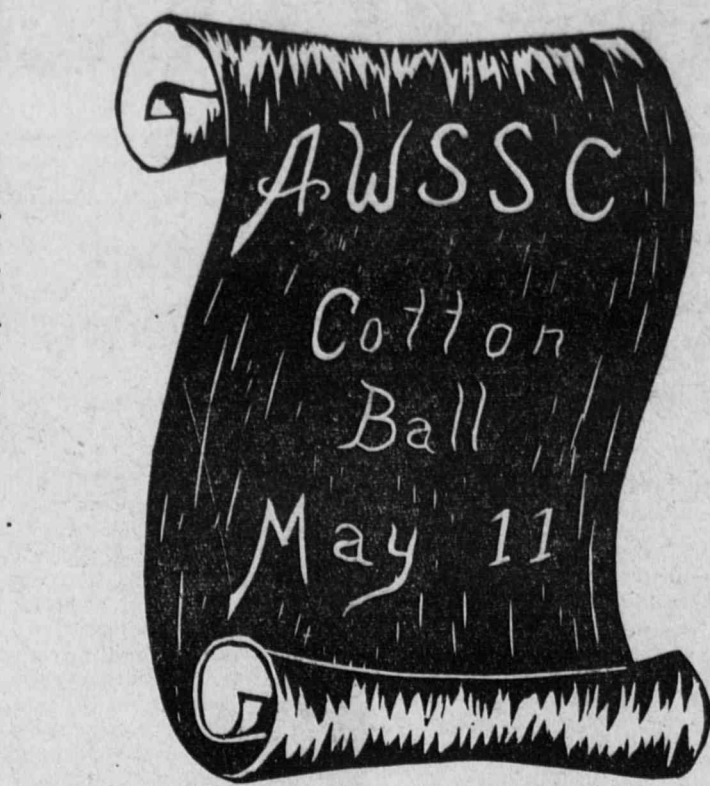 AWSSC
Cotton
Ball
May 11